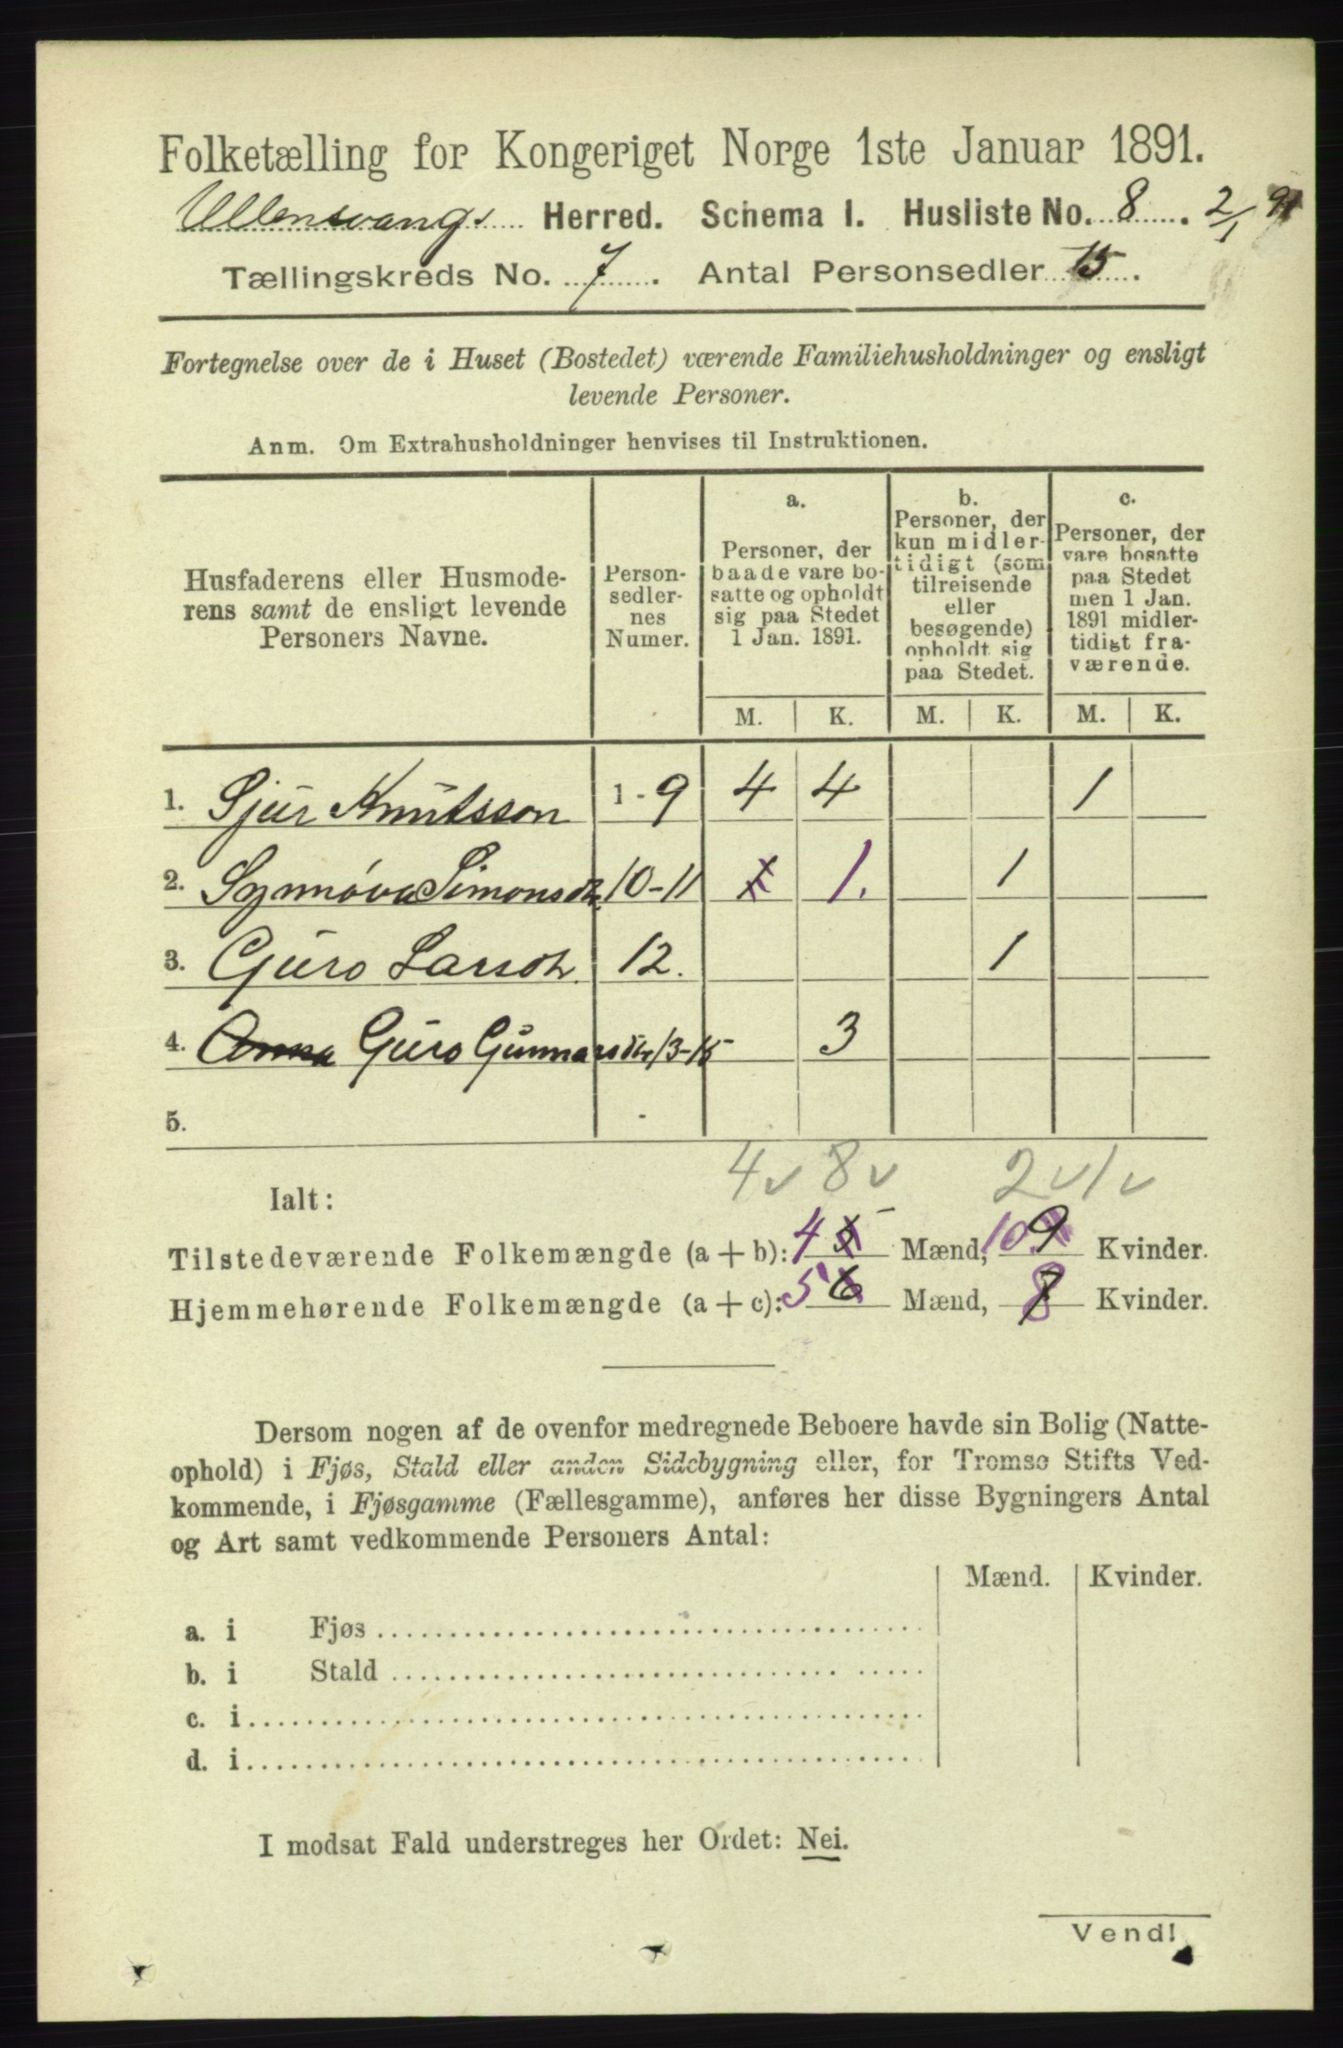 Folketælling for Kongeriget Norge 1ste Januar 1891.
Ullensvangs Herred. Schema I. Husliste No. 8. 2/1 91
Tællingskreds No. 7. Antal Personsedler 15.
Fortegnelse over de i Huset (Bostedet) værende Familiehusholdninger og ensligt
levende Personer.
Anm. Om Extrahusholdninger henvises til Instruktionen.
Husfaderens eller Husmode-
rens samt de ensligt levende
Personers Navne.
Person-
sedler-
nes
Numer.
a.
Personer, der
baade vare bo-
satte og opholdt
sig paa Stedet
1 Jan. 1891.
b.
Personer, der
kun midler-
tidigt (som
tilreisende
eller
besøgende)
opholdt sig
paa Stedet.
c.
Personer, der
vare bosatte
paa Stedet
men 1 Jan.
1891 midler-
tidigt fra-
værende.
M. K. M. K. M. K.
1. Sjur Knutsson 1 - 9 4 4 1
2. Synnøva Simonsdtr. 10-11 1 1. 1
3. Guro Larsdtr. 12. 1
4. Anna Guro Gunnarsdtr 13-15 3
5. -
4 v 8 v 2 v 1 v
Ialt:
Tilstedeværende Folkemængde (a + b): 4 5 Mænd, 10 9 Kvinder.
Hjemmehørende Folkemængde (a + c): 5 6 Mænd, 8 7 Kvinder.
Dersom nogen af de ovenfor medregnede Beboere havde sin Bolig (Natte-
ophold) i Fjøs, Stald eller anden Sidebygning eller, for Tromsø Stifts Ved-
kommende, i Fjøsgamme (Fællesgamme), anføres her disse Bygningers Antal
og Art samt vedkommende Personers Antal:
Mænd. Kvinder.
a. i Fjøs
b. i Stald
c. i
d. i
I modsat Fald understreges her Ordet: Nei.
Vend!